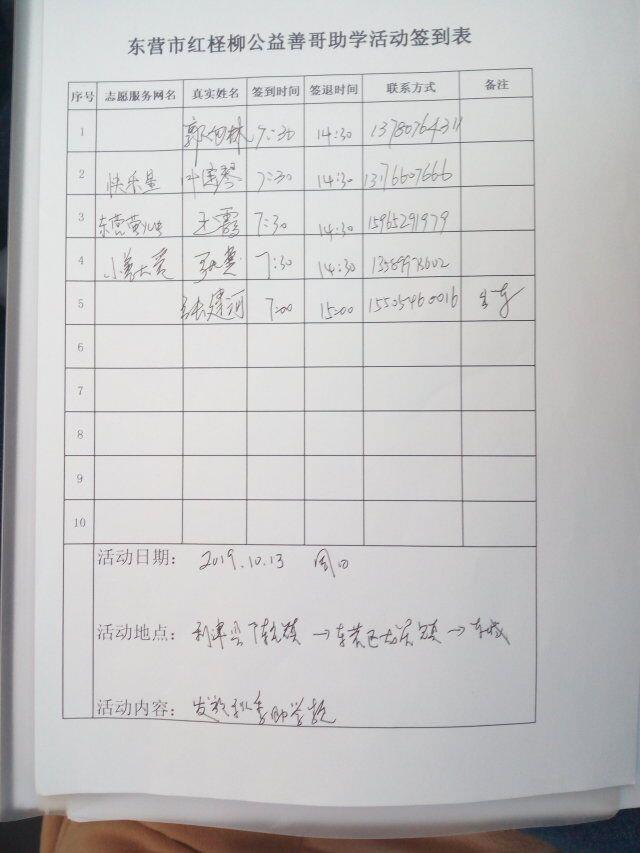 东营市红柽柳公益善哥助学活动签到表
序号 志愿服务网名 真实姓名 签到时间 签退时间 联系方式 备注
1 7:30 14:30
2 快乐星 7:30 14:30 13176607666
3 东营萤火虫 王霞 7:30 14:30 15965291979
4 7:30 14:30
5 张建河 7:00 15:00 15505460016
6
7
8
9
10
活动日期: 2019.10.13 周日
活动地点: 利津县 → 东营区龙居镇 → 东城
活动内容: 发放秋季助学款